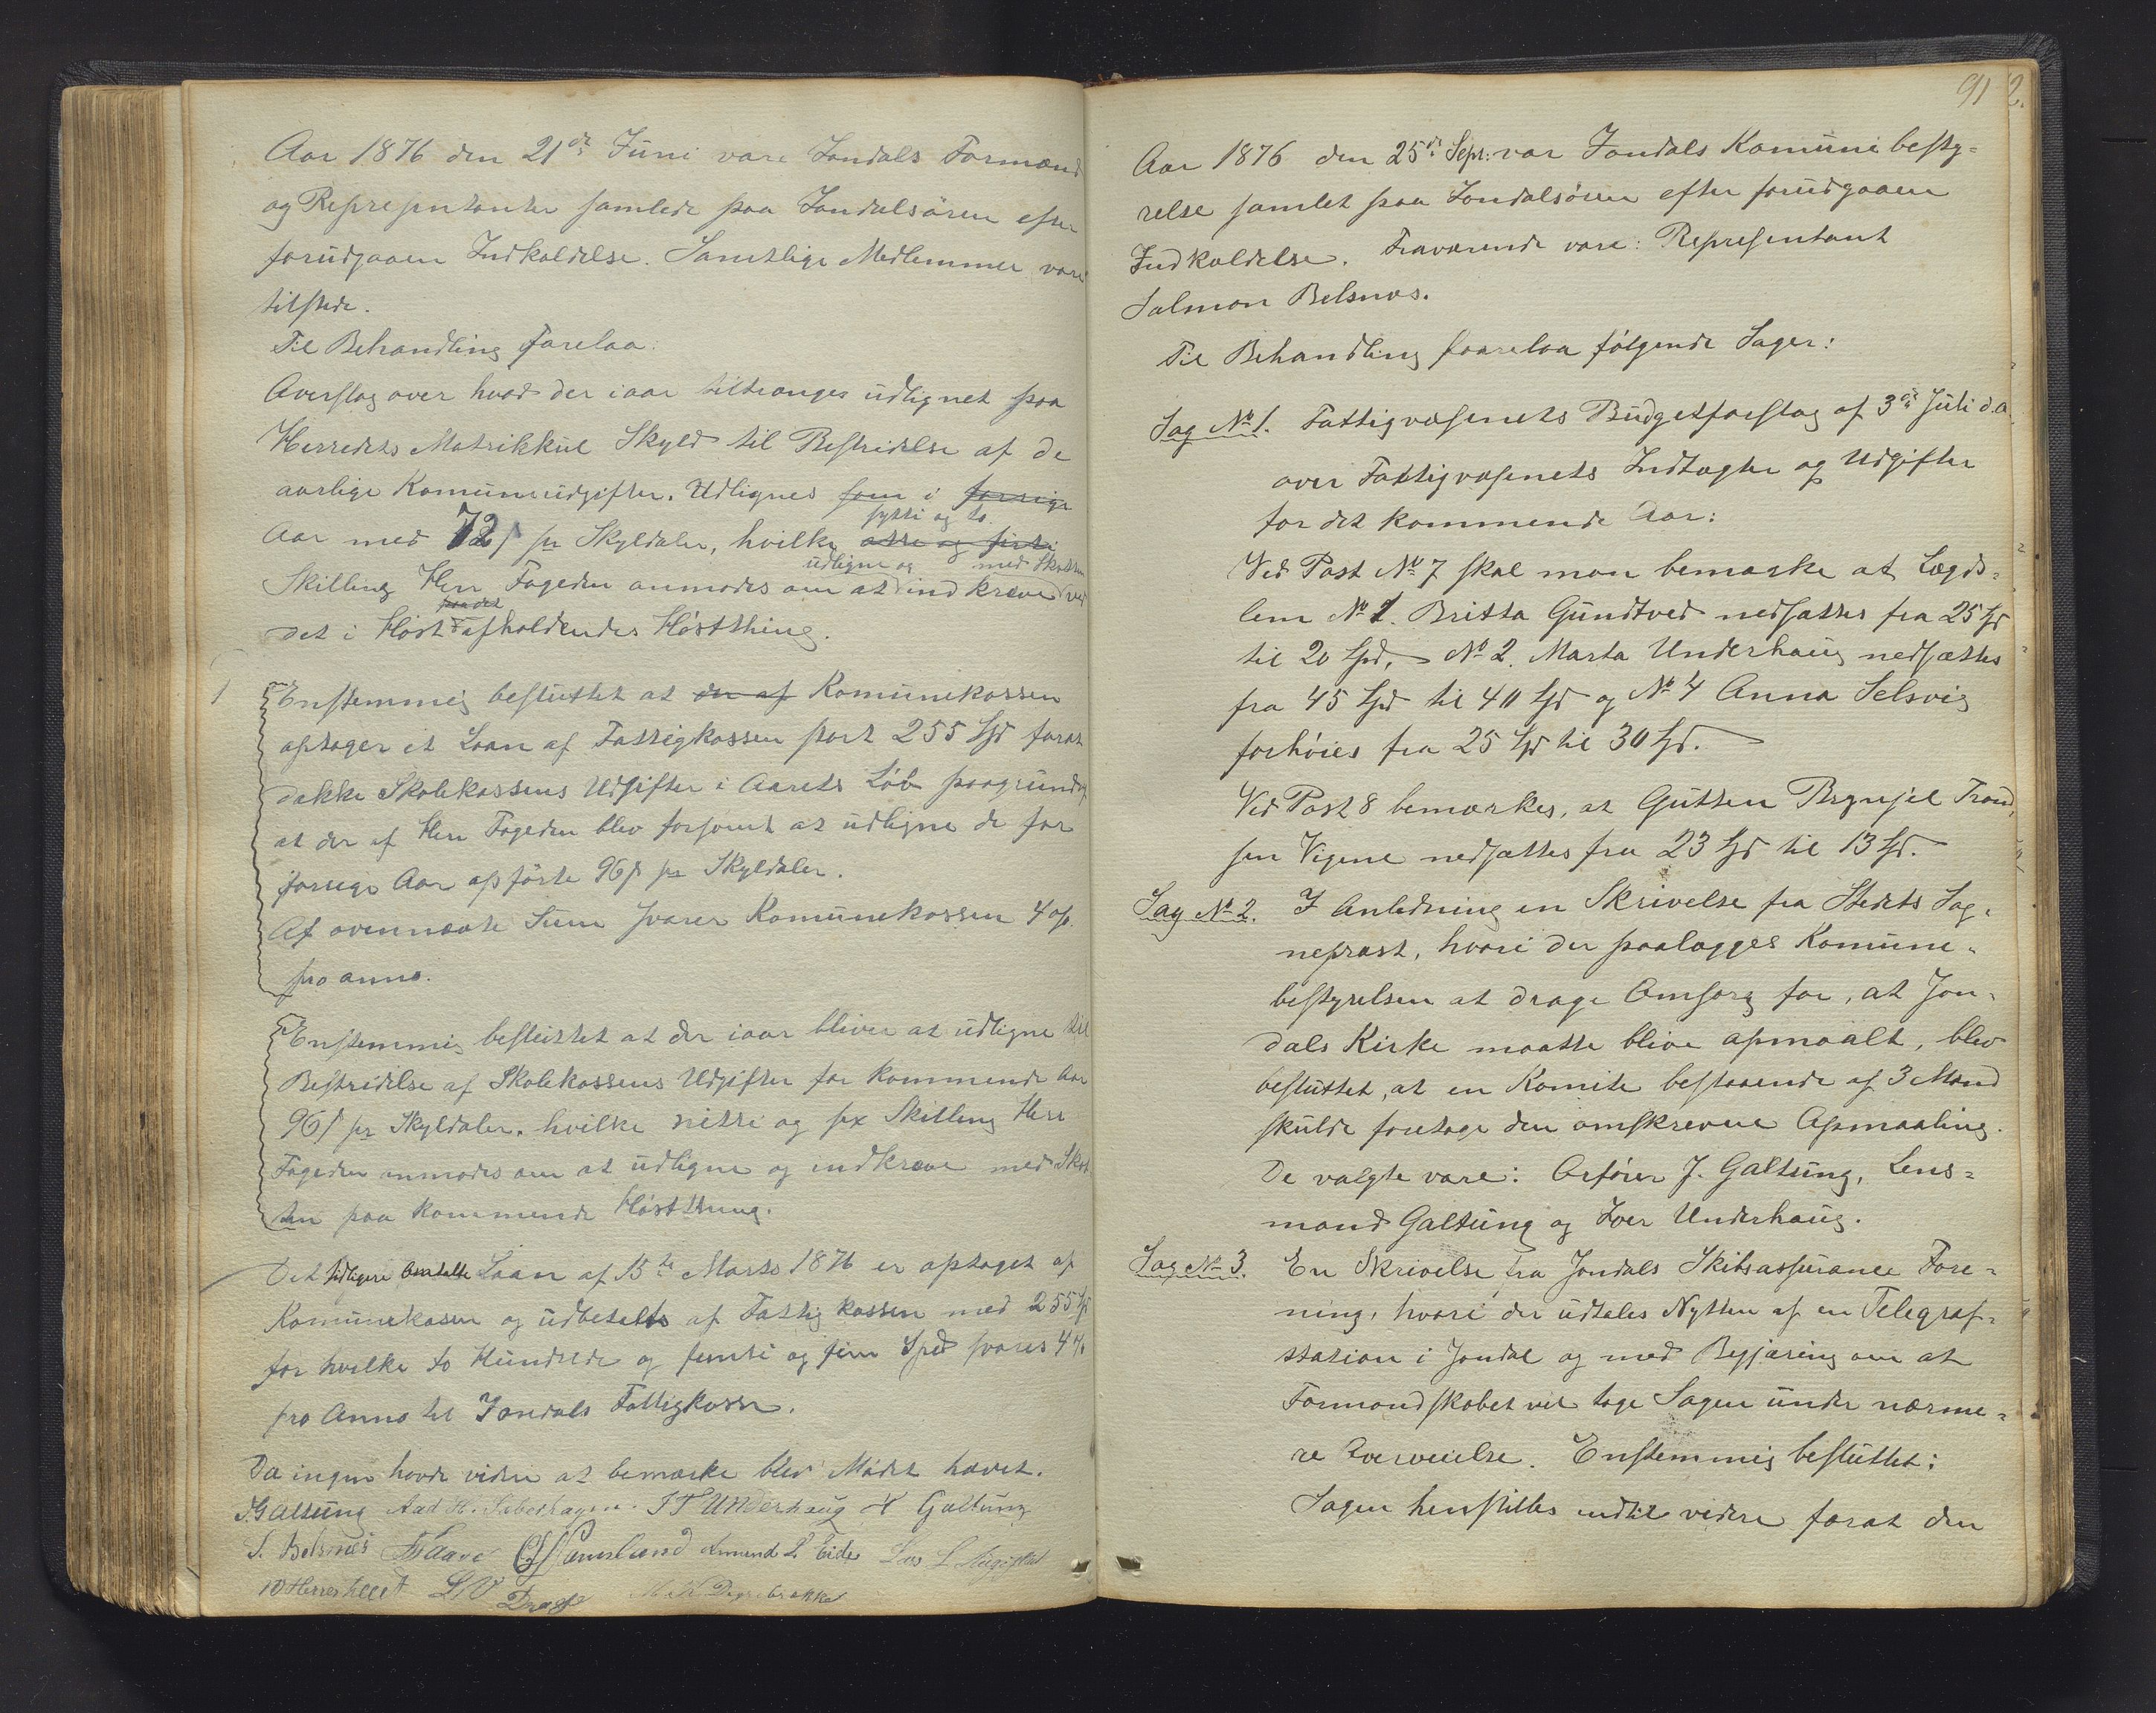 Aar 1876 den 21de Juni vare Jondals Formænd
og Repræsentanter samlede paa Jondalsøren efter
forudgaaen Indkaldelse. Samtlige Medlemmer vare
tilstede.
Til Behandling forelaa:
Overslag over hvad der iaar tiltrænges udlignet paa
Herredets Matrikkul Skyld til Bestridelse af de
aarlige Komuneudgifter. Udlignes som i forrige
sytti og to
Aar med 72 s pr Skyldaler, hvilke otte og firti
udligne og med Skatten
Skilling Herr Fogeden anmodes om at indkræve ved
paa det
det i Høst afholdendes Høstthing.
1 Enstemmig besluttet at der af Komunekassen
optager et Laan af Fattigkassen stort 255 Spd forat
dække Skolekassens Udgifter i Aarets Løb paagrund af
at der af Herr Fogeden blev forsømt at udligne de for
forrige Aar opførte 96 s pr Skyldaler.
Af ovennævte Sum svarer Komunekassen 4 %
pro anno.
Enstemmig besluttet at der iaar bliver at udligne til
Bestridelse af Skolekassens Udgifter for kommende Aar
96 s pr Skyldaler. hvilke nitti og sex Skilling Herr
Fogeden anmodes om at udligne og indkræve med Skat
ten paa kommende Høstthing.
Det tidligere omtalte Laan af 15de Marts 1876 er optaget af
Komunekassen og udbetalts af Fattigkassen med 255 Spd
for hvilke to Hundrede og femti og fem Spd svares 4 %
pro Anno til Jondals Fattigkasse.
Da ingen havde videre at bemærke blev Mødet hævet.
J. Galtung Aad H. Sæberhagen. I T Underhaug N Galtung
S. Belsnæs Amund L. Eide Lars L
91 2.
Aar 1876 den 25de Sept: var Jondals Komunebesty-
relse samlet paa Jondalsøren efter forudgaaen
Indkaldelse. Fraværende vare: Repræsentant
Salmon Belsnæs.
Til Behandling foorelaa følgende Sager:
Sag No 1. Fattigvæsenets Budgetforslag af 3de Juli d.a.
over Fattigvæsenets Indtægter og Udgifter
for det kommende Aar:
Ved Post No 7 skal man bemærke at Lægds-
lem No 1. Britta Gundtved nedsættes fra 25 Spd
til 20 Spd, No 2. Marta Underhaug nedsættes
fra 45 Spd til 40 Spd og No 4 Anna Selsvig
forhøies fra 25 Spd til 30 Spd.
Ved Post 8 bemærkes, at Gutten Brynjel Trond
sen Vigene nedsættes fra 23 Spd til 13 Spd.
Sag No 2. I Anledning en Skrivelse fra Stedets Sog-
neprest, hvori der paalægges Komune-
bestyrelsen at drage Omsorg for, at Jon-
dals Kirke maatte blive opmaalt, blev
besluttet, at en Komite bestaaende af 3 Mænd
skulde foretage den omskrevne Opmaaling.
De valgte vare: Orfører J. Galtung, Lens-
mand Galtung og Iver Underhaug.
Sag No 3. En Skrivelse fra Jondals Skibsassurance Fore-
ning, hvori der udtales Nytten af en Telegraf-
station i Jondal og med Begjæring om at
Formandskabet vil tage Sagen under nærme-
re Overveielse. Enstemmig besluttet:
Sagen henstilles indtil videre forat den